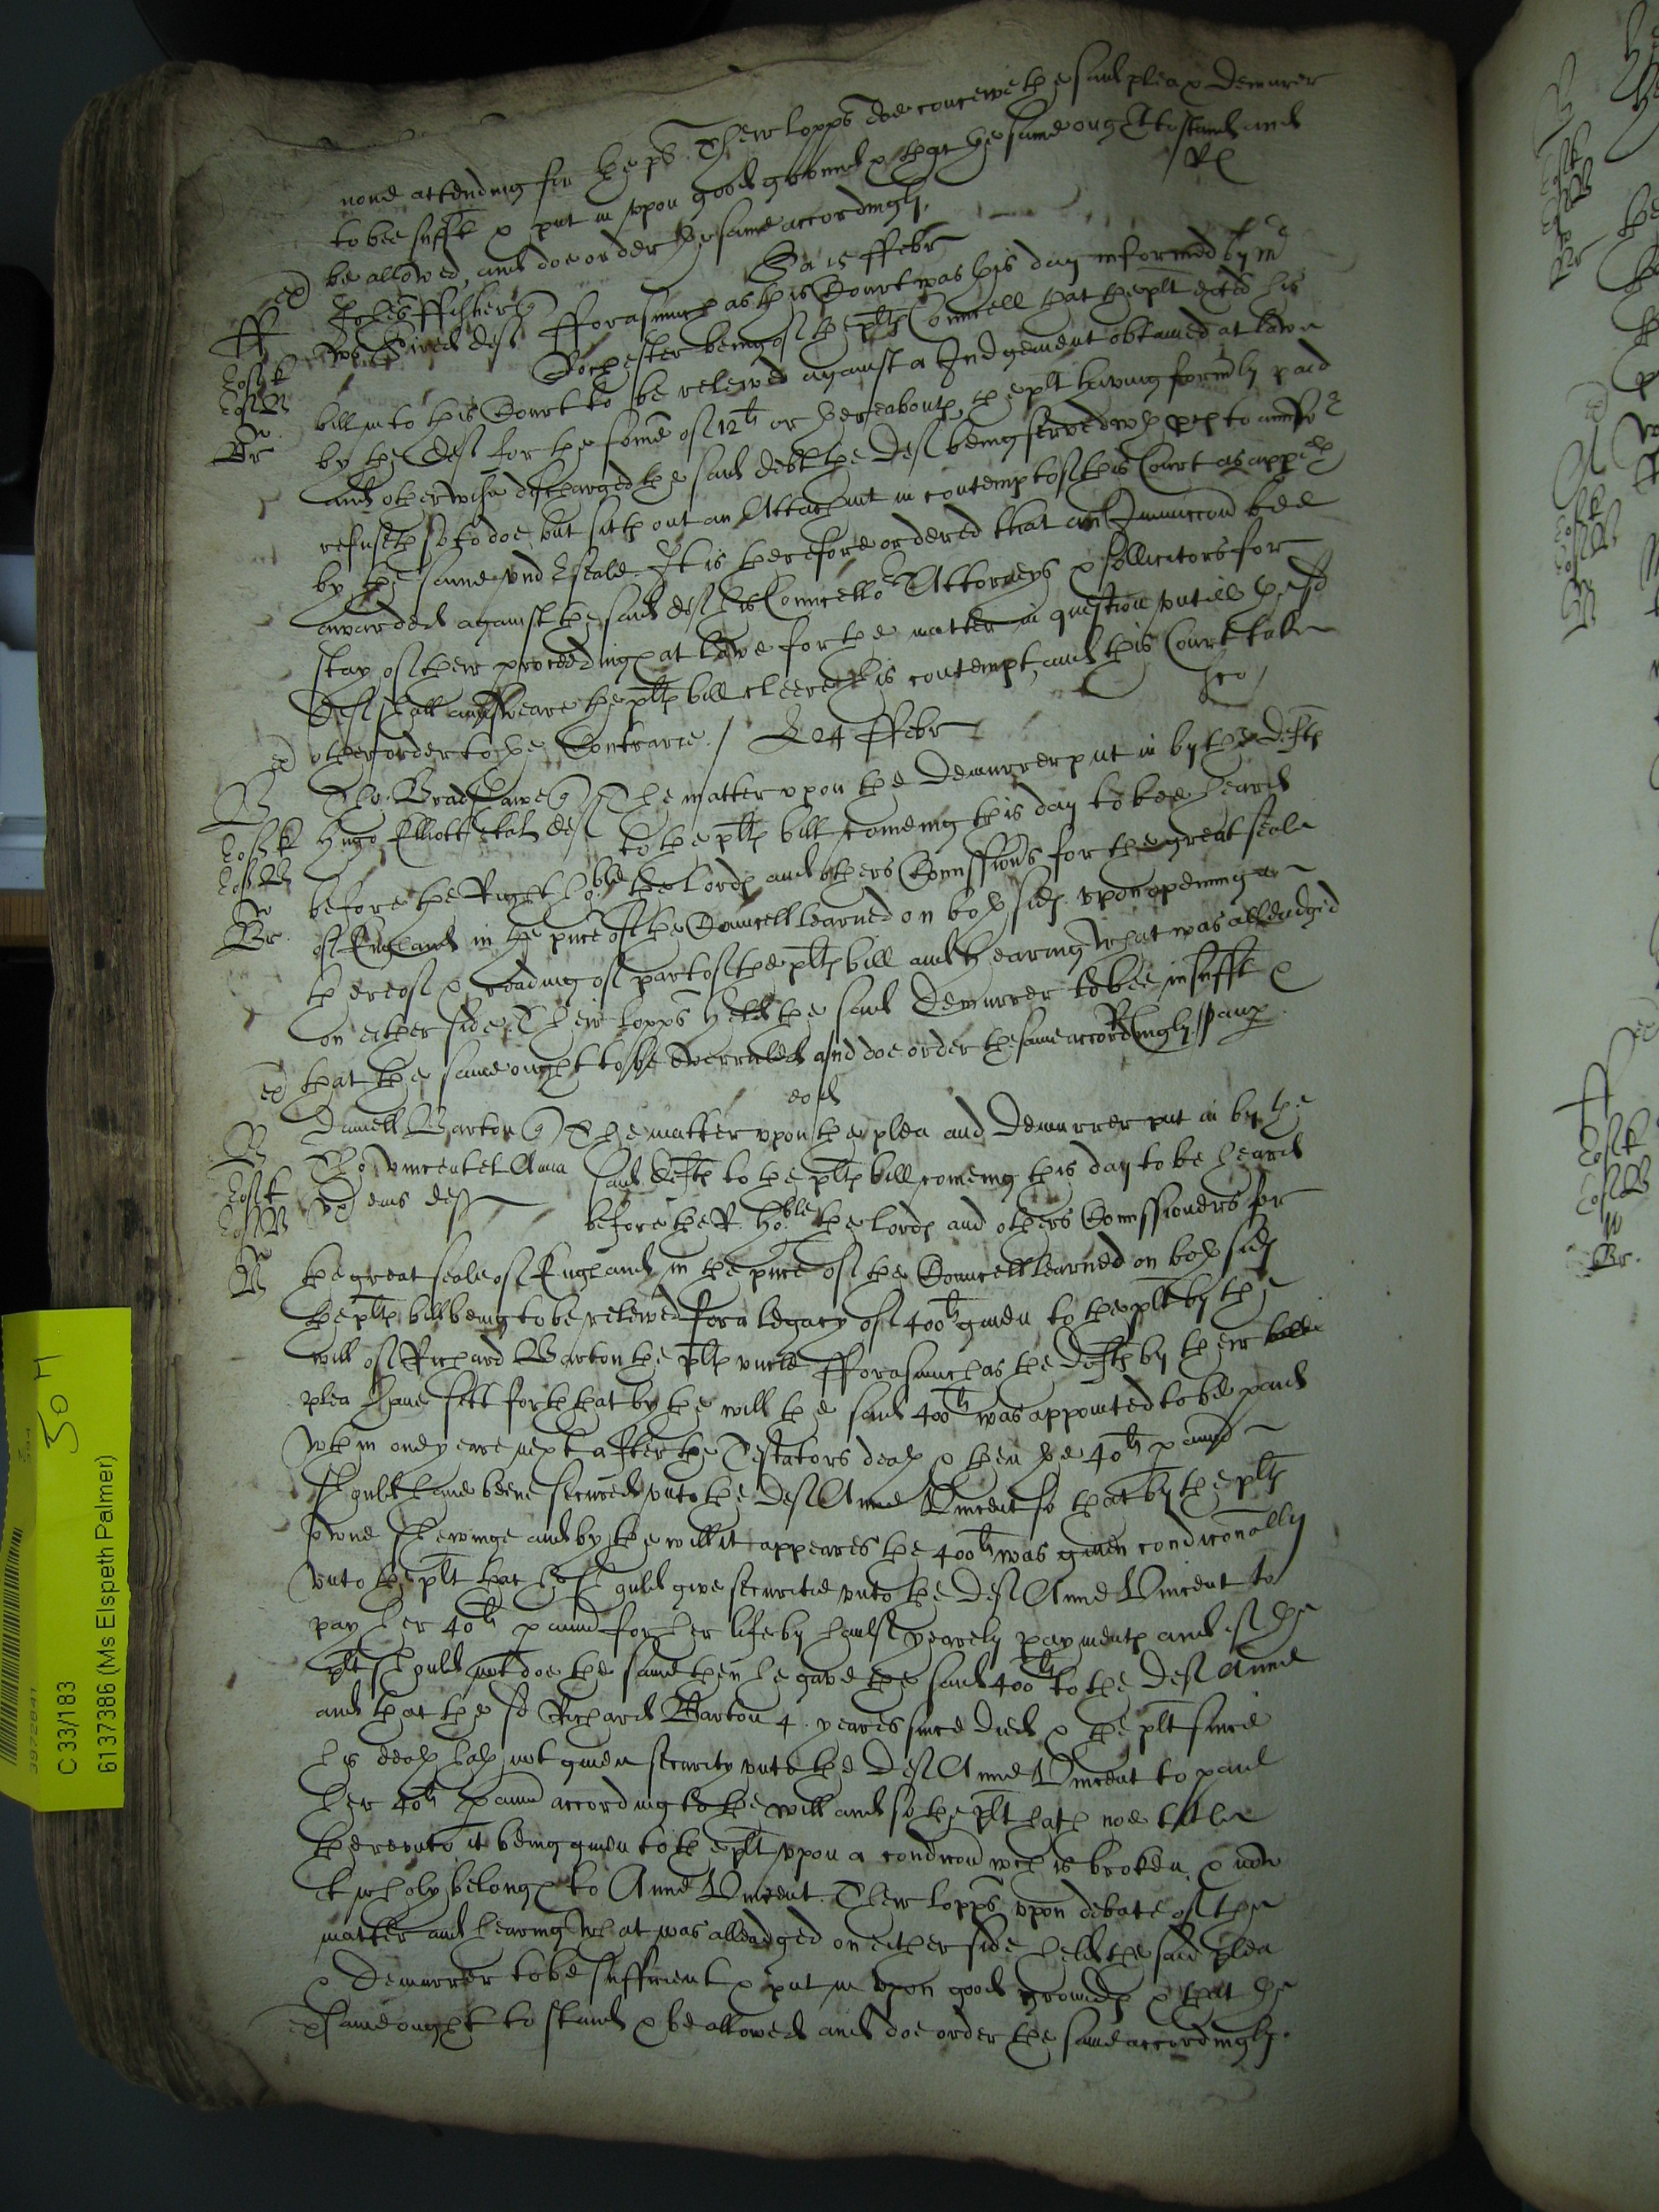 none attending for the pl̃t Their lopps̃ doe conceive the said plea & demurer
to bee suffit & put in upon good ground & that the same ought to stand and
be allowed, and doe order the same accordingly.
Sa 15 ffebr
ff
ffisher
deft fforasmuch as this Court was this day informed by Mr
Rochester being of the pltes Councell that the plt exted his
bill into this Court to be releived against a Judgement obtained at lawe
by the deft for the some of 12li or thereabouts, the plt having formerly paid
and otherwise discharged the said debt the deft being served wth proces to answere
refuseth so to doe, but sitts out an Attachmt in contempt of this Court as appeth
by the same und seale. It is therefore ordered that an Injunccon bee
awarded against the said deft his Councello Attorneys & sollicitors for
stay of their proceedings at lawe for the matter in question untill the sd
deft shall answeare the pltes bill cleere his contempt, and this Court take
other order to the Contrarie. / 24 ffebr
B
Tho: Bradshawe The matter upon the demurrer put in by the defts
Hugo Elliott et al deft to the pltes bill comeing this day to bee heard
before the Right hoble the lords and others Comissions for the great seale
of England in the pnce of the Councell learned on both sides upon opening
thereof & reading of part of the pltes bill and hearing what was alleadged
on either side Their lopps held the said demurrer to bee insufft &
that the same ought to be overruled and doe order the same accordingly.
eod
B
Daniell Barton The matter upon the plea and demurrer put in by the
Tho Vincent et Anna said defts to the pltes bill comeing this day to be heard
eius deft before the R. hoble the lords and others Comissioners for
the great seale of England in the pnce of the Councell learned on both sides
the pltes bill being to be releived for a legacy of 400li given to the plt by the
will of Richard Barton the pltes uncle fforasmuch as the defts by their
plea have sett forth that by the will the said 400li was appointed to be paid
wthin one yeare next after the Testators death & then the 40li p annu
should have beene secured unto the deft Anne Vincent so that by the pltes
owne shewinge and by the will it appeares the 400li was given condiconally
unto the plt that he should give securitie unto the deft Anne Vincent to
pay her 40li p annu for her life by halfe yearely payments and if the
plt should not doe the same then he gave the said 400li to the deft Anne
and that the sd Richard Barton 4. yeares since died & the plt since
his death hath not given security unto the deft Anne Vincent to paie
her 40li p annu according to the will and so the plt hath noe title
thereunto, it being given to the plt upon a condicon wch is broken & now
it wholy belongs to Anne Vincent. Their lopps upon debate of the
matter and hearing what was alleadged on either side held the said plea
& demurrer to be sufficient & put in upon good grounds & that the
same ought to stand & be allowed and doe order the same accordingly.
C 33/183
6137386 (Ms Elspeth Palmer)